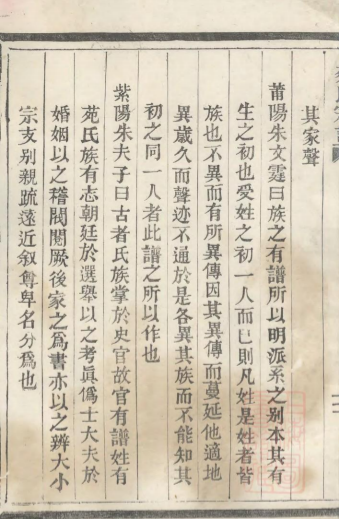 其家聲
莆陽朱文霆曰族之有譜所以明派系之别本其有
生之初也受姓之初一人而巳則凡姓是姓者皆
族也不異而有所異傳因其異傳而蔓延他適地
異歲久而聲迹不通於是各異其族而不能知其
初之同一人者此譜之所以作也
紫陽朱夫子曰古者氏族掌於史官故官有譜姓有
苑氏族有志朝廷於選舉以之考眞僞士大夫於
婚姻以之稽閥閱厥後家之爲書亦以之辨大小
宗支别親疏遠近叙尊卑名分爲也